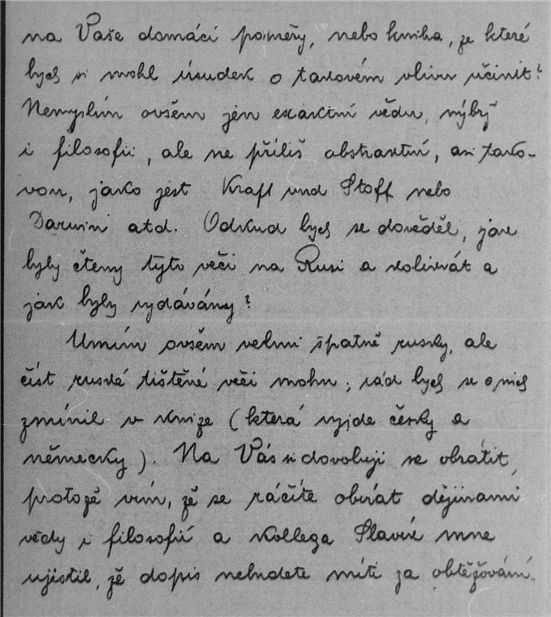 na Vaše domácí poměry, nebo kniha, ze které
bych si mohl úsudek o takovém vlivu učinit?
Nemyslím ovšem jen exaktní vědu, nýbrž
i filosofii, ale ne příliš abstraktní, asi tako-
vou, jako jest Kraft und Stoff nebo
Darwin atd. Odkud bych se dověděl, jak
byly čteny tyto věci na Rusi a kolikrát a
jak byly vydávány?
Umím ovšem velmi špatně rusky, ale
číst ruské tištěné věci mohu; rád bych se o nich
zmínil v knize (která vyjde česky a
německy). Na Vás si dovoluji se obrátit,
protože vím, že se ráčíte obírat dějinami
vědy i filosofií a kollega Slavík mne
ujistil, že dopis nebudete míti za obtěžování.